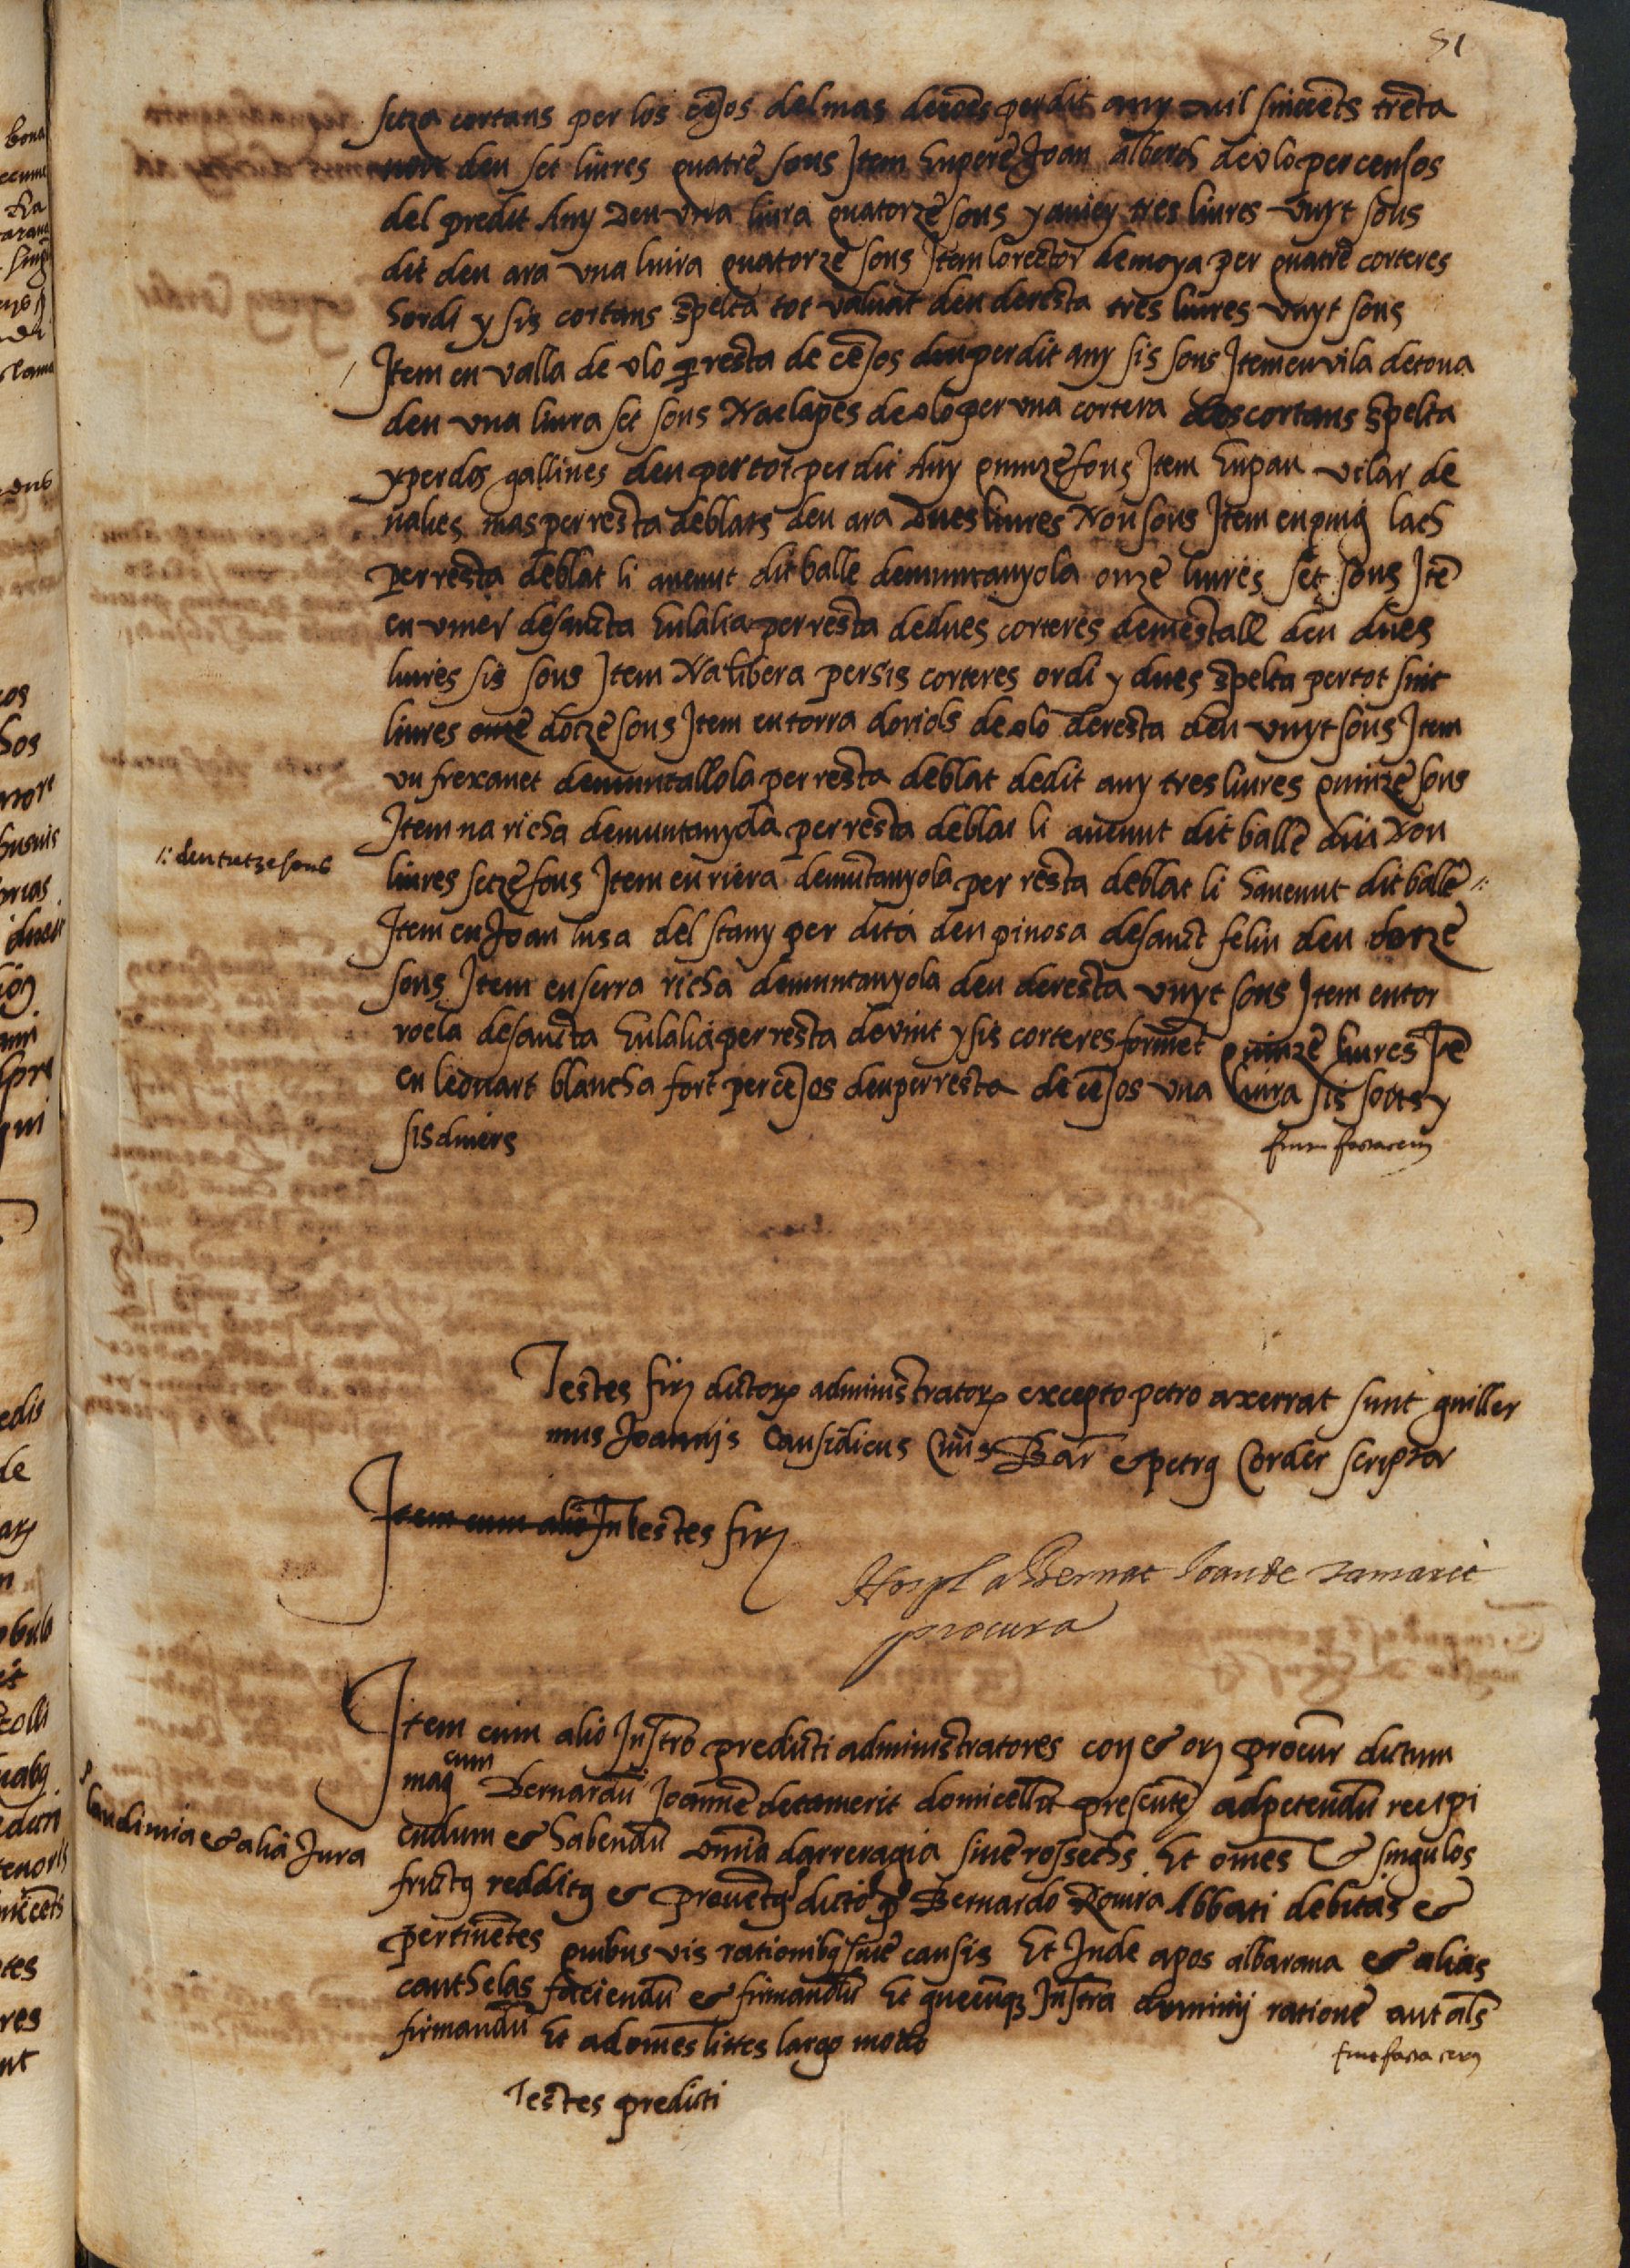 51
setze cortans per los cẽsos del mas per dit any mil sincẽts trẽta
nou deu set liures quatre sous Item En pere Joan alberch de olo per censos
del predit Any Deu vna liura quatorze sous y auiey tres liures vuyt sous
dit deu ara vna liura quatorze sous Item lo rector de moya per quatre corteres
hordi y sis cortans spelta tot valuat deu de resta tres liures vuyt sous
Item en valla de olo ꝑ resta de cẽsos deu per dit any sis sous Item en vila de tona
deu vna liura set sous Na clapes de olo per vna cortera dos cortans spelta
y per dos gallines deu per tot per dit Any quinze sous Item En pau vilar de
nalies mas per resta de blats deu ara Dues liures Nou sous Item en puig lach
per resta de blat li a venut dit balle de muntanyola onze liures set sous Itẽ
en vmer de sancta Eulalia per resta de dues corteres de mestall deu dues
liures sis sous Item Na libera per sis corteres ordi y dues spelta per tot sinc
liures onze dotze sous Item en torra doriols de olo de resta deu vuyt sous Item
vn frexanet de muntallola per resta de blat de dit any tres liures quinze sous
Item na richa de muntanyola per resta de blat li a venut dit balle Nou
liures setze sous Item en riera de mũtanyola per resta de blat li ha venut dit balle //:
/: deu tretze sous
Item en Joan lusa del stany per dita den pinosa de sanct feliu deu dotze
sous Item en serra richa de muntanyola deu de resta vuyt sous Item en tor
roela de sancta Eulalia per resta de vint y sis corteres formẽt quinze liures Itẽ
en leonart blancha fort per cẽsos deu per resta de cẽsos vna liura sis sous y
sis diners
Testes firʒ dictorꝝ administratorꝝ excepto petro axerrat sunt guiller
mus Joannis Causidicus Ciuis Bar̃ & petrꝰ Corder scriptor
Item cum alio In Testes firʒ
Bernat Joan de tamarit
procura
Item cum alio Instro predicti administratores cõ & orʒ procur̃ dictum
magcum Bernardũ Joannẽ de tamerit domicellũ presentẽ ad petendũ recipi
endum & habendũ omnia darreragia siue rossechs Et omẽs & singulos
laudimia & alia Jura
fructꝰ redditꝰ & prouẽtꝰ dicto Bernardo Rouira Abbati debitas &
pertinẽtes quibusvis rationibꝰ siue causis Et Inde apos albarana & alias
cauthelas faciendũ & firmandũ Et quecũqꝫ Instra dominij ratione aut als̃
firmandũ Et ad omẽs lites largo modo
Testes predicti